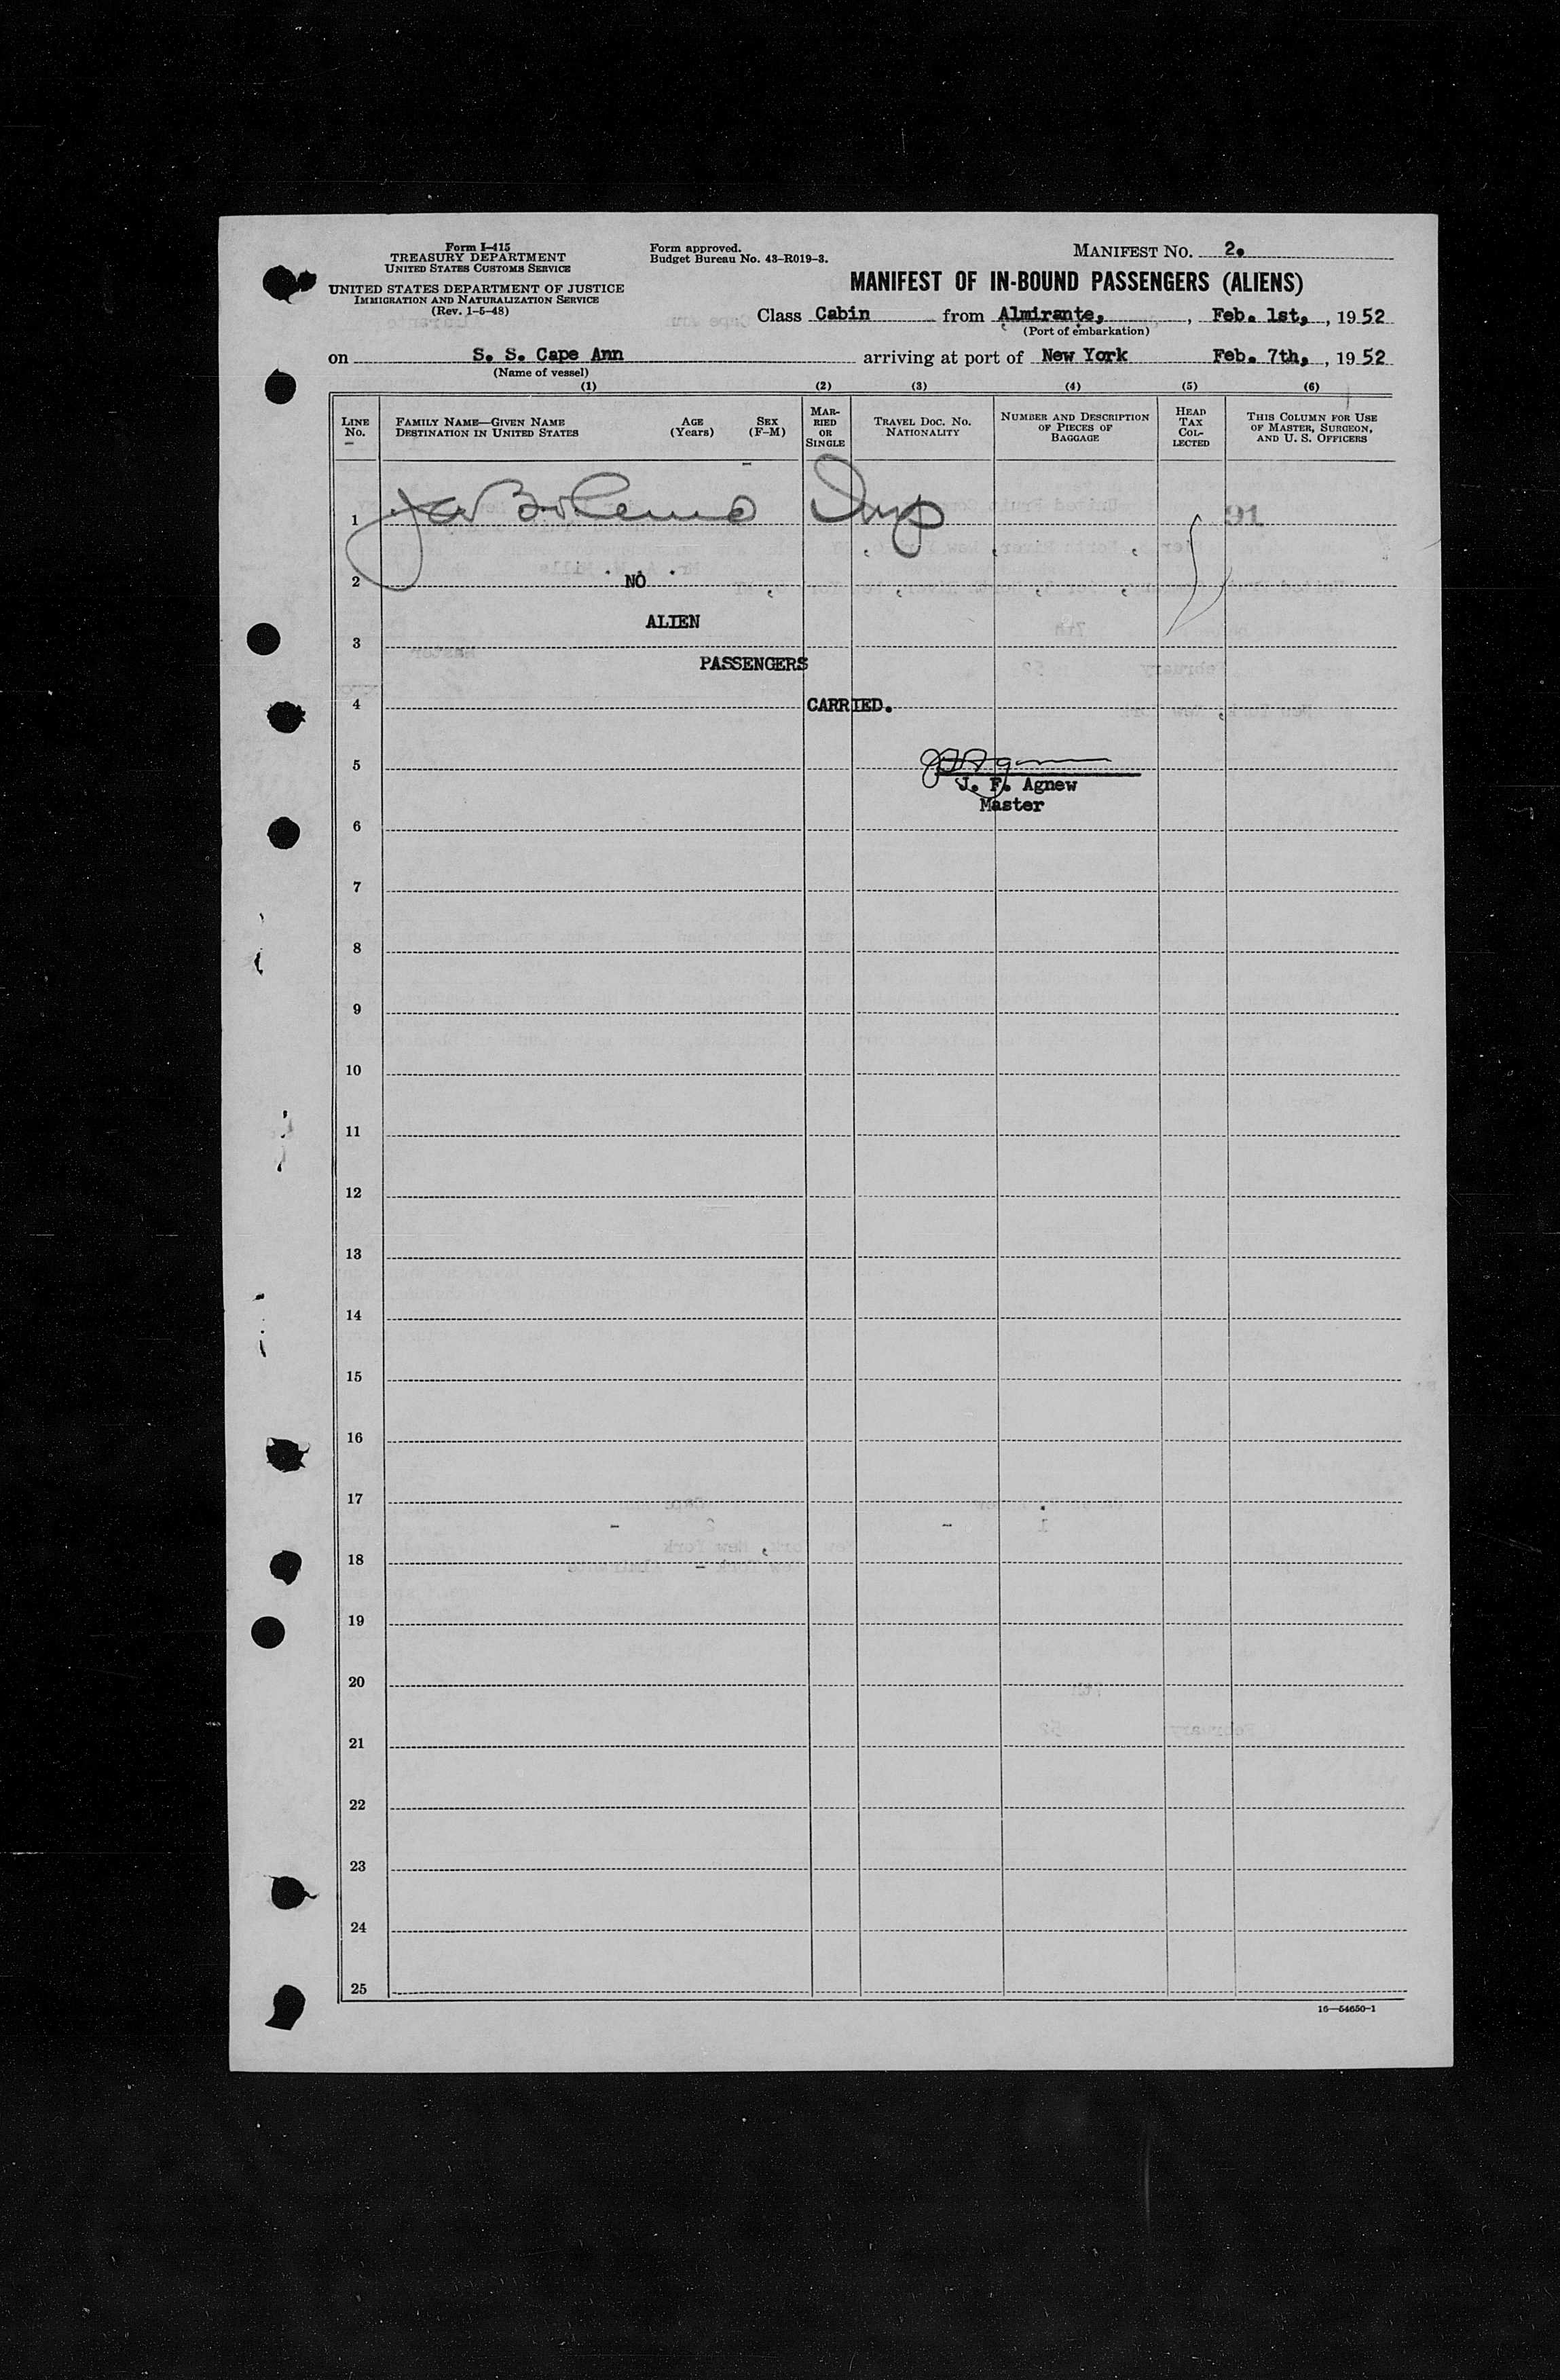 Form I-415
TREASURY DEPARTMENT
UNITED STATES CUSTOMS SERVICE
UNITED STATES DEPARTMENT OF JUSTICE
IMMIGRATION AND NATURALIZATION SERVICE
(Rev. 1-5-48)
Form approved.
Budget Bureau No. 43-R019-3.
MANIFEST NO. 2.
MANIFEST OF IN-BOUND PASSENGERS (ALIENS)
Class Cabin from Almirante, , Feb. 1st, , 1952
(Port of embarkation)
on S. S. Cape Ann arriving at port of New York Feb. 7th, , 1952
(Name of vessel)
(1) (2) (3) (4) (5) (6)
LINE No.
FAMILY NAME—GIVEN NAME
DESTINATION IN UNITED STATES
AGE (Years)
SEX (F-M)
MARRIED OR SINGLE
TRAVEL DOC. NO.
NATIONALITY
NUMBER AND DESCRIPTION OF PIECES OF BAGGAGE
HEAD TAX COLLECTED
THIS COLUMN FOR USE OF MASTER, SURGEON, AND U. S. OFFICERS
1 Insp
2 NO
ALIEN
3
PASSENGERS
4 CARRIED.
5
J. F. Agnew
Master
6
7
8
9
10
11
12
13
14
15
16
17
18
19
20
21
22
23
24
25
16—54650-1